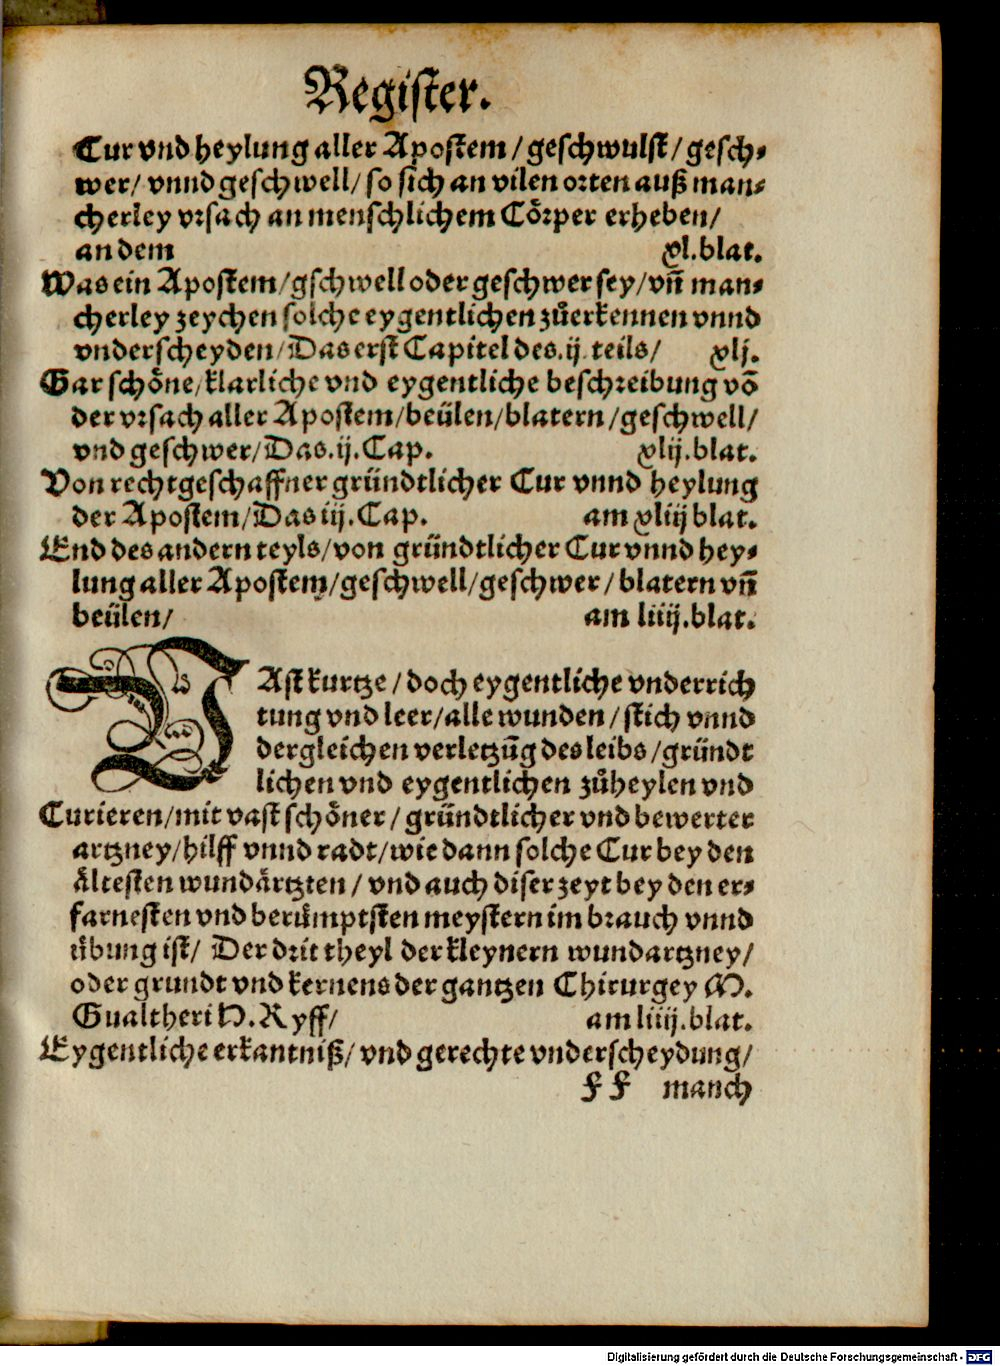 Register.
Cur vnd heylung aller Apostem/geschwulst/gesch-
wer/ vnnd geschwell/ so sich an vilen orten auß man-
cherley vrsach an menschlichem Cörper erheben/
an dem xl.blat.
Was ein Apostem/gschwell oder geschwer sey/vñ man-
cherley zeychen solche eygentlichen zůerkennen vnnd
vnderscheyden/Das erst Capitel des.ij.teils/ xlj.
Gar schöne/klarliche vnd eygentliche beschreibung võ
der vrsach aller Apostem/beülen/blatern/geschwell/
vnd geschwer/Das.ij.Cap. xlij.blat.
Von rechtgeschaffner gründtlicher Cur vnnd heylung
der Apostem/Das iij.Cap. am xliij blat.
End des andern teyls/von gründtlicher Cur vnnd hey-
lung aller Apostem/geschwell/geschwer/blatern vñ
beülen/ am liiij.blat.
FAst kurtze/doch eygentliche vnderrich
tung vnd leer/alle wunden/stich vnnd
dergleichen verletzũg des leibs/gründt
lichen vnd eygentlichen zůheylen vnd
Curieren/mit vast schöner/gründtlicher vnd bewerter
artzney/hilff vnnd radt/wie dann solche Cur bey den
ältesten wundärtzten/ vnd auch diser zeyt bey den er-
farnesten vnd berůmptsten meystern im brauch vnnd
übung ist/ Der drit theyl der kleynern wundartzney/
oder grundt vnd kernens der gantzen Chirurgey M.
Gualtheri H. Ryff/ am liiij.blat.
Eygentliche erkantniß/ vnd gerechte vnderscheydung/
FF manch
Digitalisierung gefördert durch die Deutsche Forschungsgemeinschaft - DFG